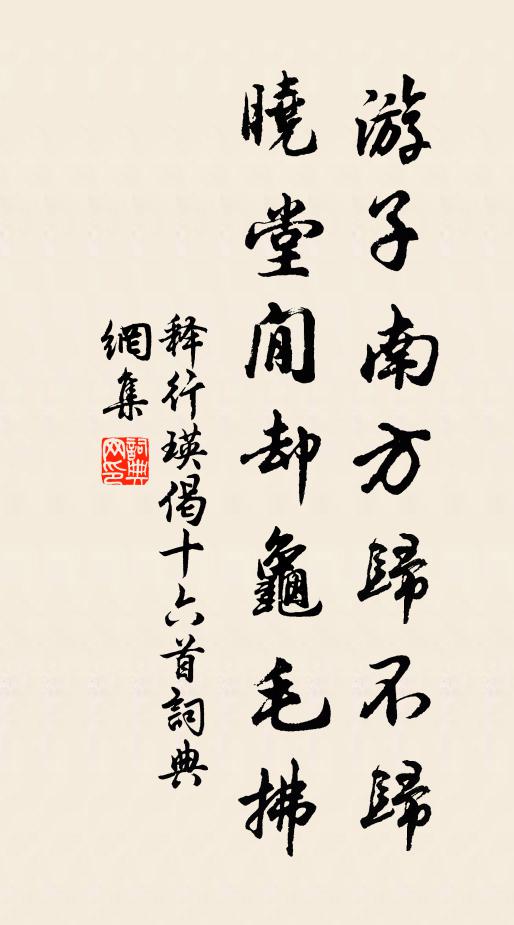 游子南方歸不歸
曉堂閒却龜毛拂
释行瑛偈十六首詞典
網集
詞典網印